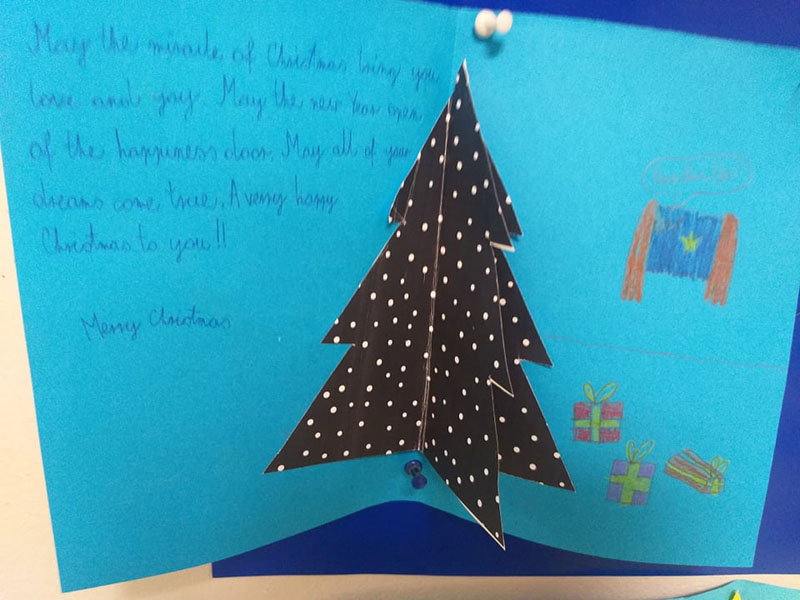 May the miracle of Christmas bring you
love and joy. May the new Year open
of the happiness door. May all of your
dreams come true. A verry happy
Christmas to you!!
Merry Christmas